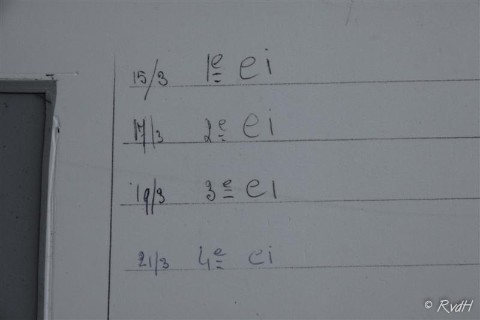 15/3 1e ei
17/3 2e ei
19/3 3e ei
21/3 4e ei
© RvdH